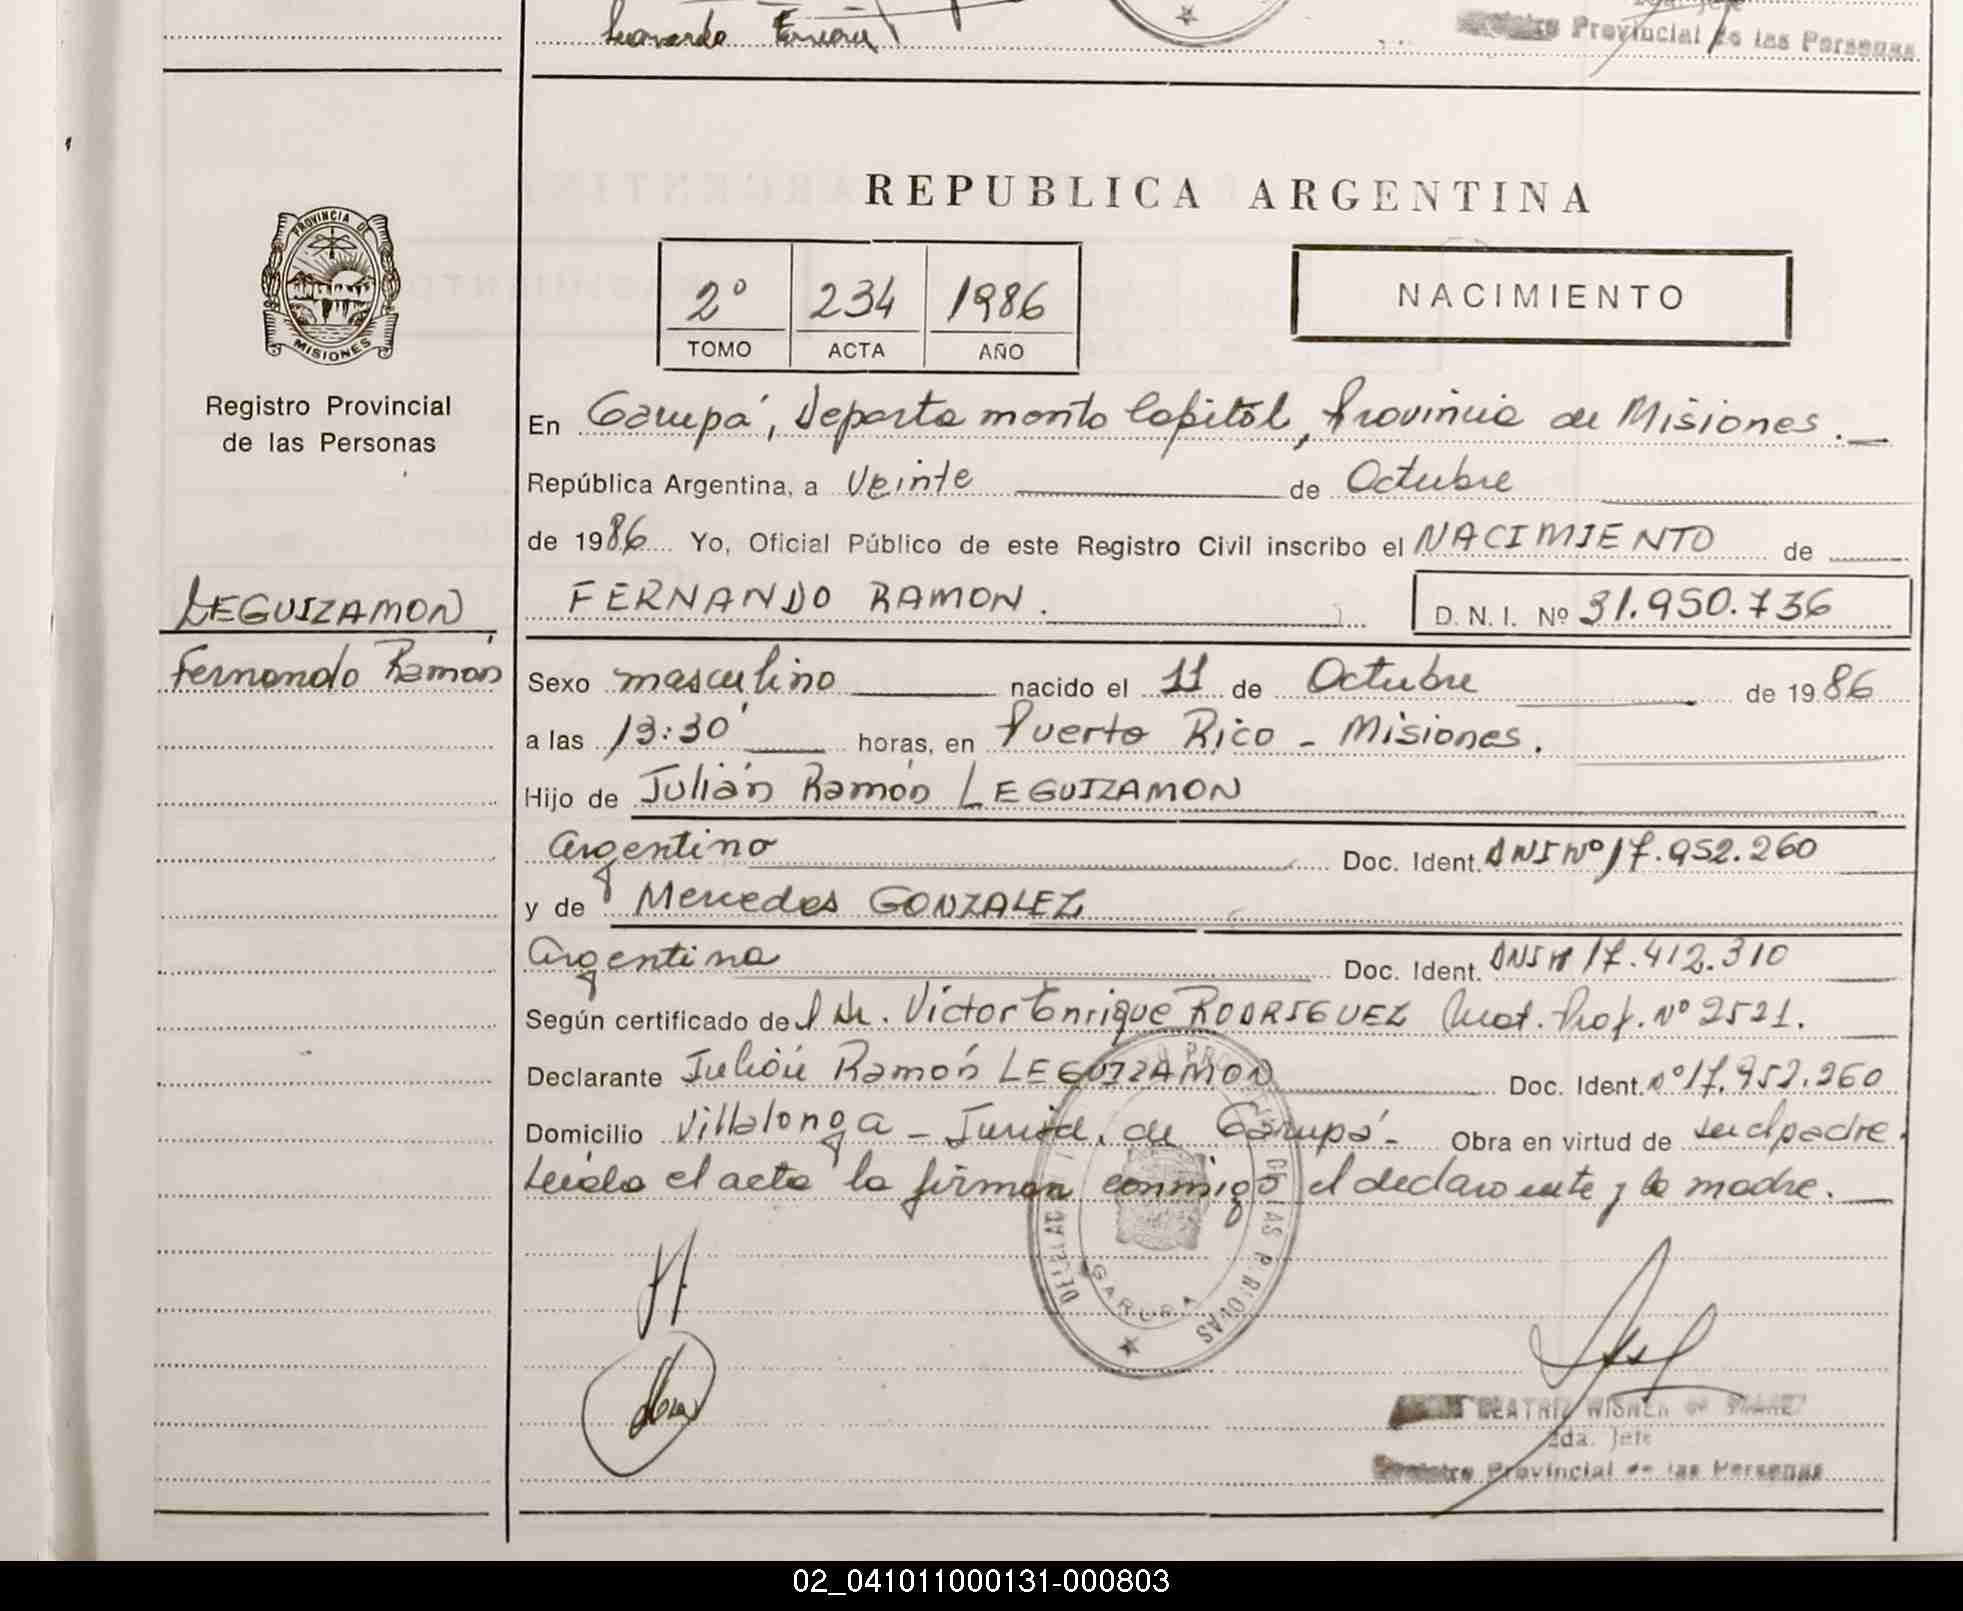 Leonardo
Provincial de las Personas
REPUBLICA ARGENTINA
PROVINCIA DE
MISIONES
2º 234 1986
TOMO ACTA AÑO
NACIMIENTO
Registro Provincial
de las Personas
En Garupá, Departamento Capital, Provincia de Misiones.
República Argentina, a Veinte de Octubre
de 1986 Yo, Oficial Público de este Registro Civil inscribo el NACIMIENTO de
LEGUIZAMON
FERNANDO RAMON. D. N. I. Nº 31.950.736
Fernando Ramón
Sexo masculino nacido el 11 de Octubre de 1986
a las 13:30 horas, en Puerto Rico - Misiones.
Hijo de Julián Ramón LEGUIZAMON
argentino Doc. Ident. DNI Nº 17.952.260
y de Mercedes GONZALEZ
argentina Doc. Ident. DNI Nº 17.412.310
Según certificado del Dr. Víctor Enrique RODRIGUEZ Mat. Prof. Nº 2521.
Declarante Julián Ramón LEGUIZAMON Doc. Ident. Nº 17.952.260
Domicilio Villalonga - Jurisd. de Garupá - Obra en virtud de ser el padre.
Leída el acta la firman conmigo el declarante y la madre.
GARUPA
BEATRIZ
2da. Jefe
Registro Provincial de las Personas
02_041011000131-000803